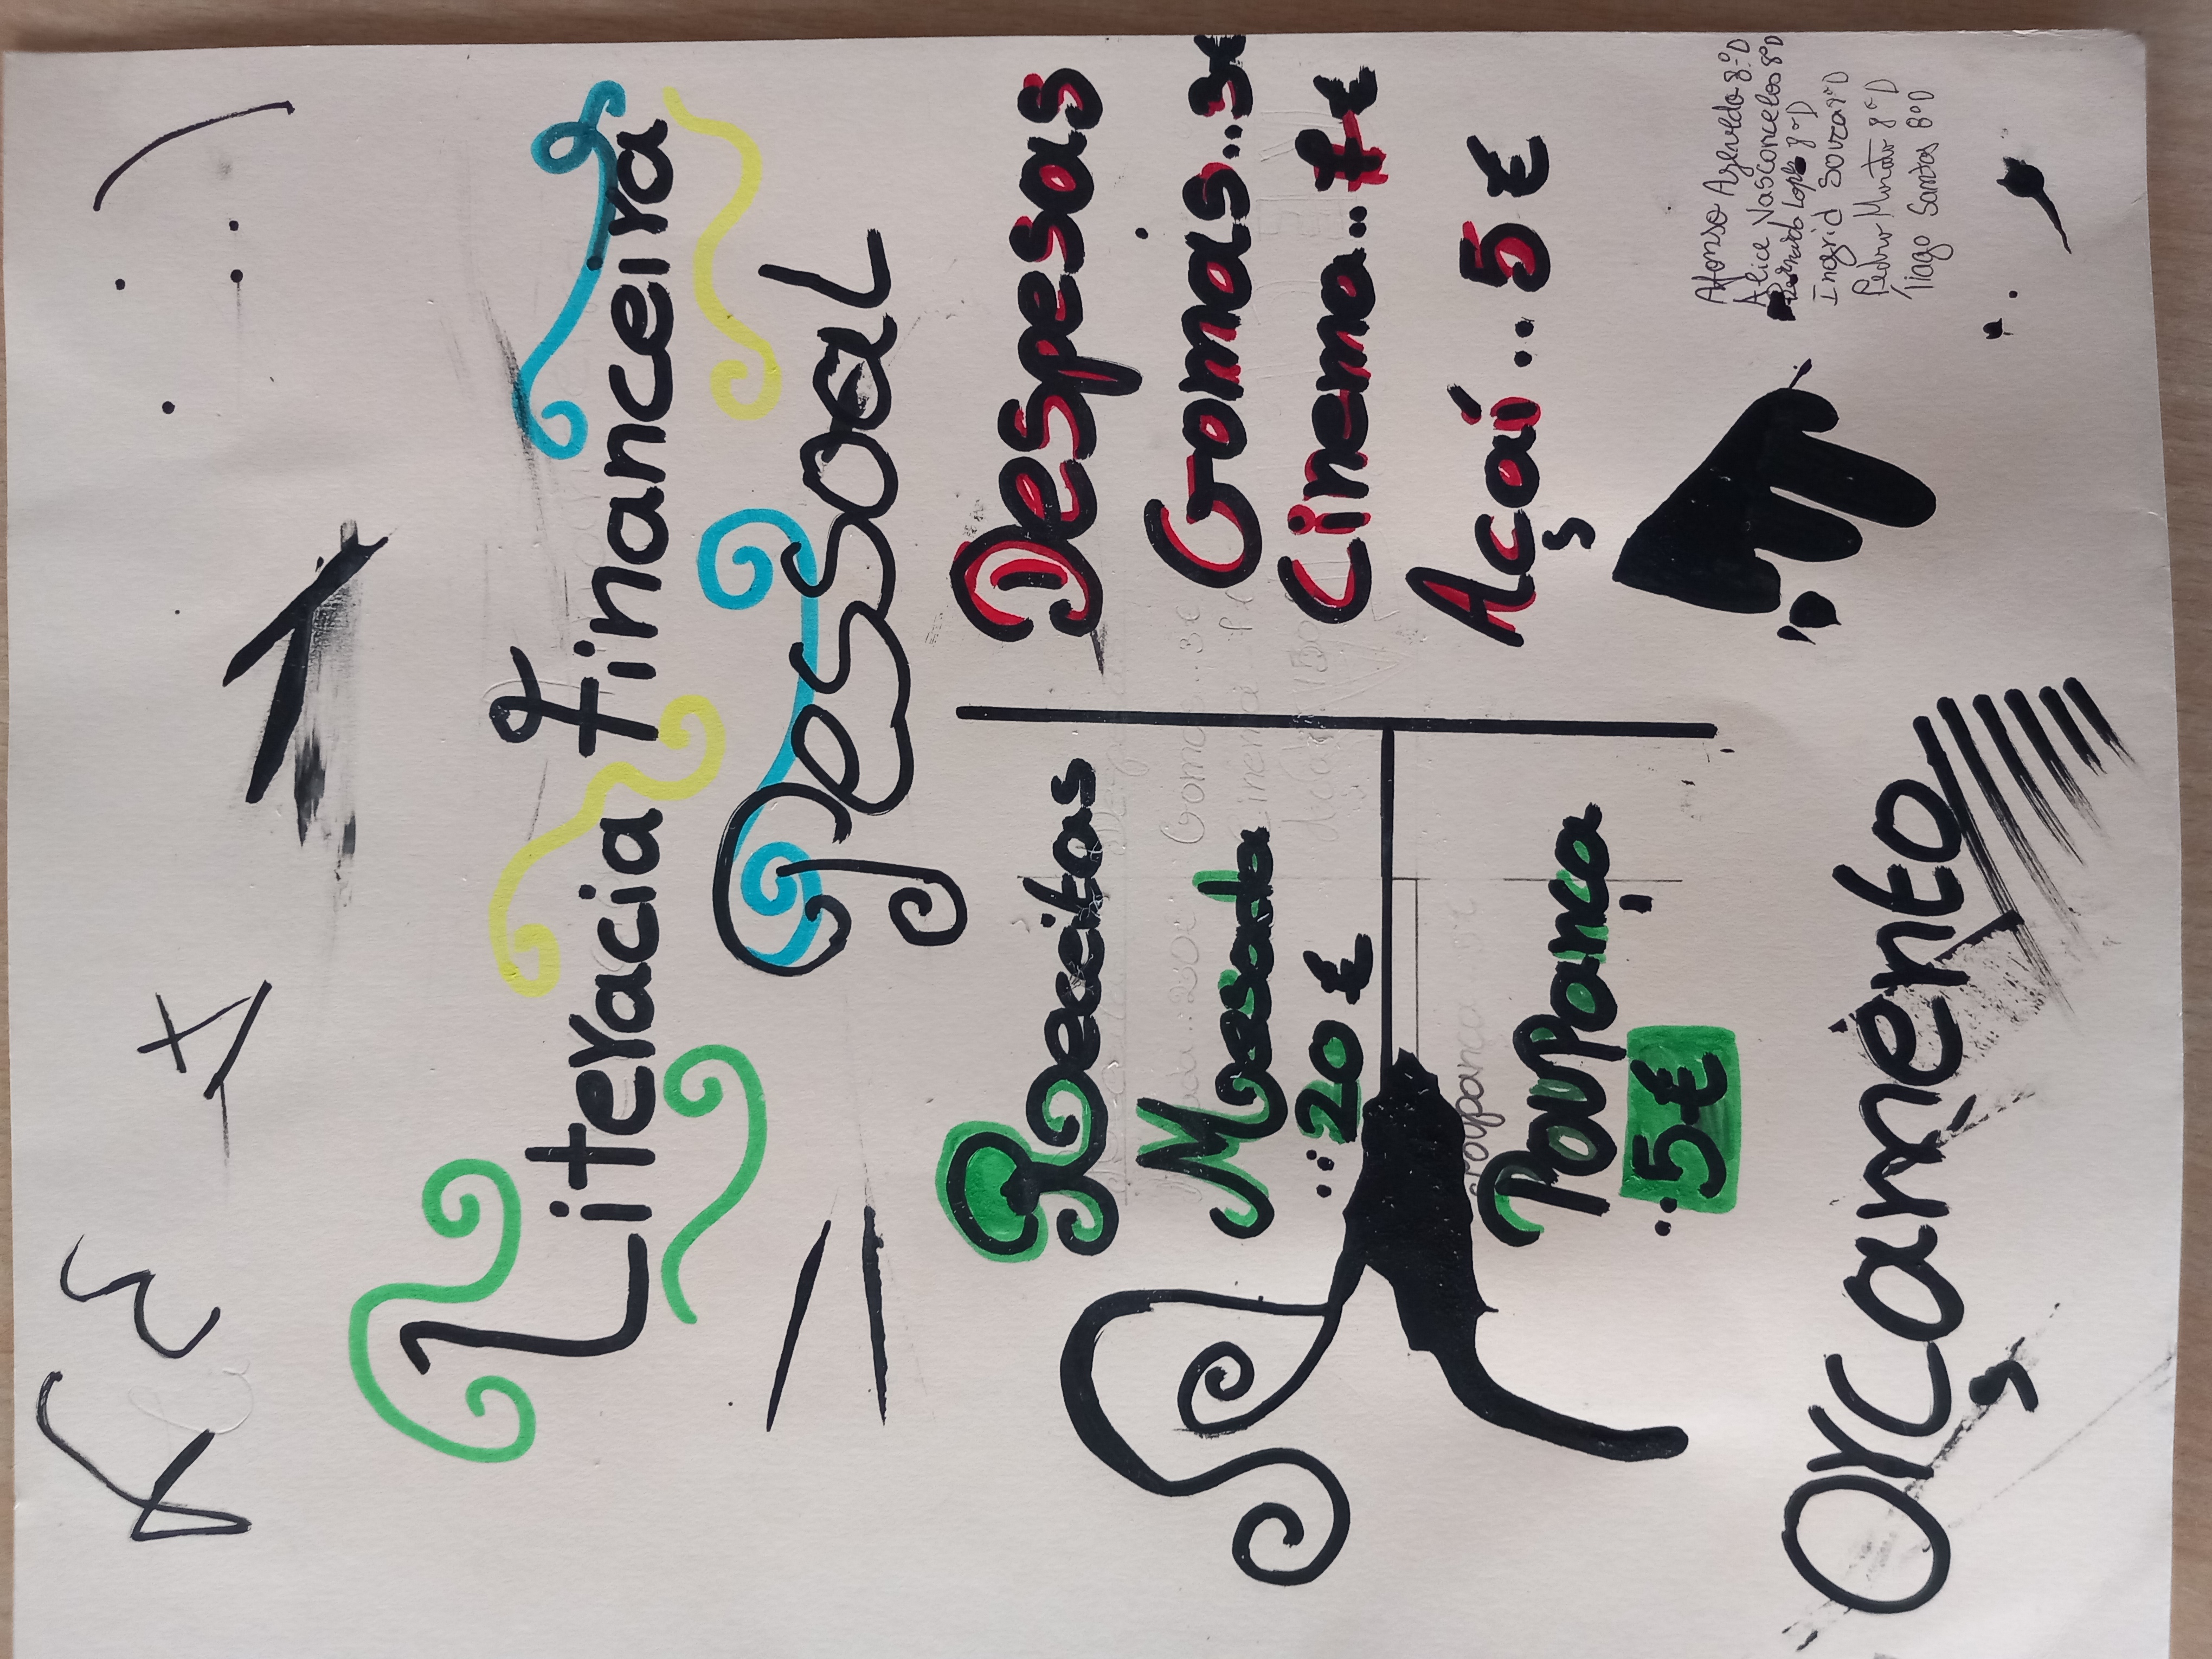 Literacia financeira
Pessoal
Receitas
Mesada
...20 €
Poupança
..5€
Despesas
Gomas...3€
Cinema..7€
Açaí..5 €
Orçamento
Afonso Azevedo 8.ºD
Alice Vasconcelos 8ºD
Bernardo Lopes 8ºD
Ingrid Souza 8ºD
Pedro 8ºD
Tiago Santos 8ºD